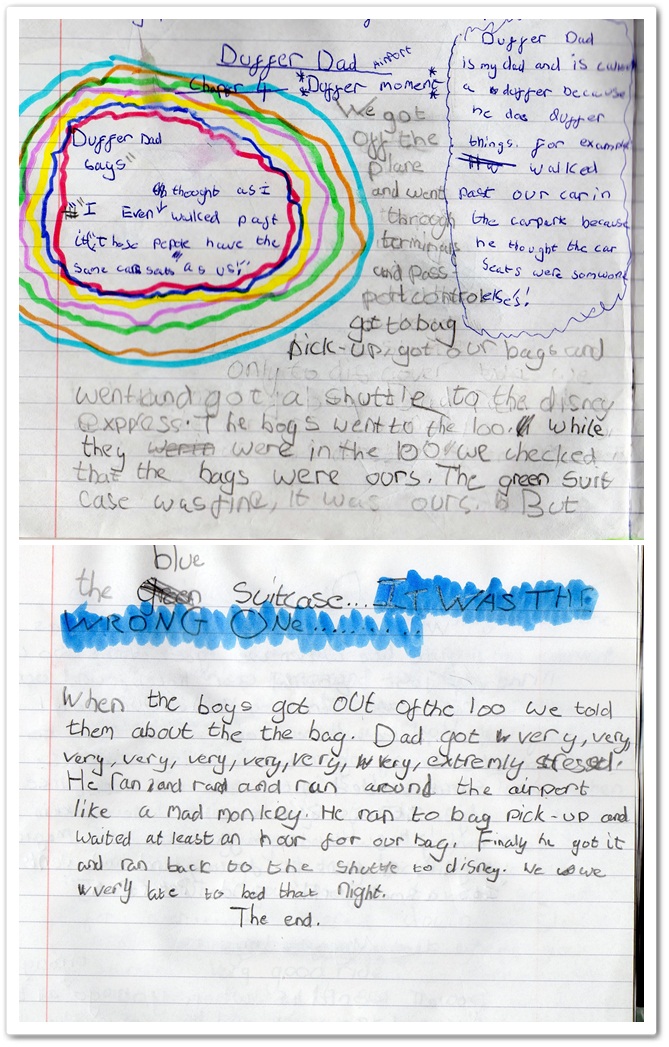 Duffer Dad
Airport
Chaper 4 *Duffer moment*
Duffer Dad
says"
thought as I
"I Even walked past
it", "those people have the
same car seats as us!"
Duffer Dad
is my dad and is
a duffer because
he das duffer
things. for example
walked
past our car in
the carpark because
he thought the car
seats were somwone
else's!
We got
off the
plane
and went
through
terminals
and pass
port control
got to bag
pick-up, got our bags and
only to discover
went and got a shuttle to the disney
exppress. The boys went to the loo. while
they were in the loo we checked
that the bags were ours. The green Suit
case was fine, It was ours. But
blue
the green Suitcase... IT WAS THE
WRONG ONe.........
When the boys got out of the loo we told
them about the the bag. Dad got very, very,
very, very, very, very, very, very, extremly stressed.
He ran, and ran and ran around the airport
like a mad monkey. He ran to bag pick-up and
waited at least an hour for our bag. Finaly he got it
and ran back to the shuttle to disney. We
very late to bed that night.
The end.